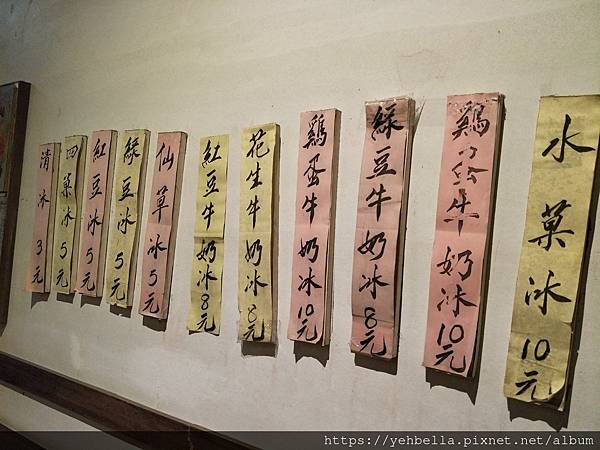 清冰3元
四菓冰5元
紅豆冰5元
綠豆冰5元
仙草冰5元
紅豆牛奶冰8元
花生牛奶冰8元
鷄蛋牛奶冰10元
綠豆牛奶冰8元
鷄蛋牛奶冰10元
水菓冰10元
https://yehbella.pixnet.net/album